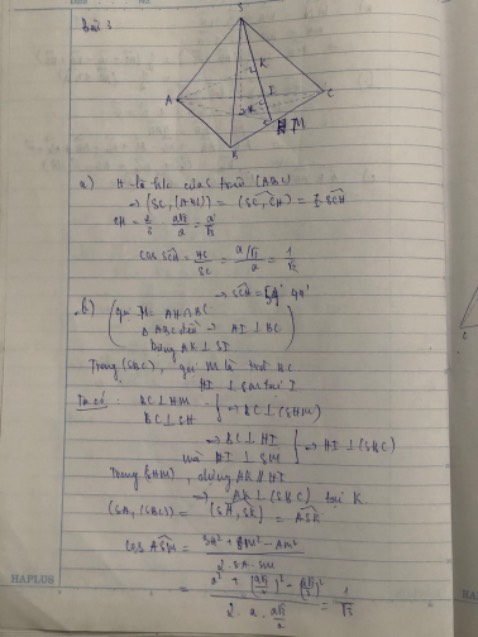 Bài 3
S
A
K
I
C
H
M
B
a) H là h/c của S trên (ABC)
→ (SC, (ABC)) = (SC, CH) = SCH
CH = 2/3 . a√3/2 = a/√3
cos SCH = HC/SC = a/√3 / a = 1/√3
→ SCH = 54° 44'
b) ( gọi M = AH ∩ BC
Δ ABC đều → AI ⊥ BC
Dựng AK ⊥ SI )
Trong (SBC), gọi M là trđ BC
HI ⊥ SM tại I
Ta có : BC ⊥ HM
BC ⊥ SH } → BC ⊥ (SHM)
→ BC ⊥ HI
mà HI ⊥ SM } → HI ⊥ (SBC)
Trong (SHM), dựng AK // HI
→ AK ⊥ (SBC) tại K
(SA, (SBC)) = (SA, SK) = ASK
cos ASM = SA² + SM² - AM² / 2.SA.SM
= a² + (a√3/2)² - (a√3/2)² / 2.a.a√3/2 = 1/√3
HAPLUS